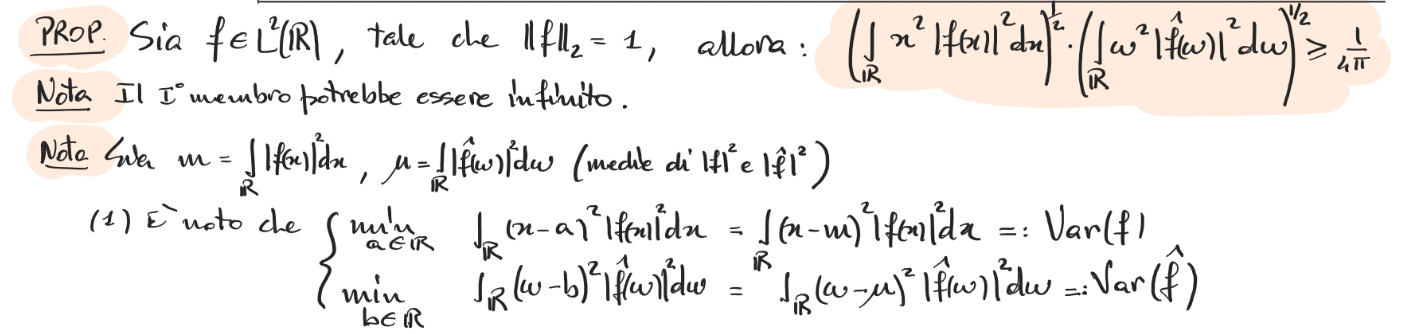 PROP. Sia f ∈ L²(ℝ), tale che ‖f‖₂ = 1, allora : (∫_ℝ x² |f(x)|² dx)^{1/2} · (∫_ℝ ω² |f̂(ω)|² dω)^{1/2} ≥ 1/4π
Nota Il I° membro potrebbe essere infinito.
Nota m = ∫_ℝ |f(x)|² dx , μ = ∫_ℝ |f̂(ω)|² dω (medie di |f|² e |f̂|²)
(1) È noto che { min_{a∈ℝ} ∫_ℝ (x-a)² |f(x)|² dx = ∫_ℝ (x-m)² |f(x)|² dx =: Var(f)
min_{b∈ℝ} ∫_ℝ (ω-b)² |f̂(ω)|² dω = ∫_ℝ (ω-μ)² |f̂(ω)|² dω =: Var(f̂)